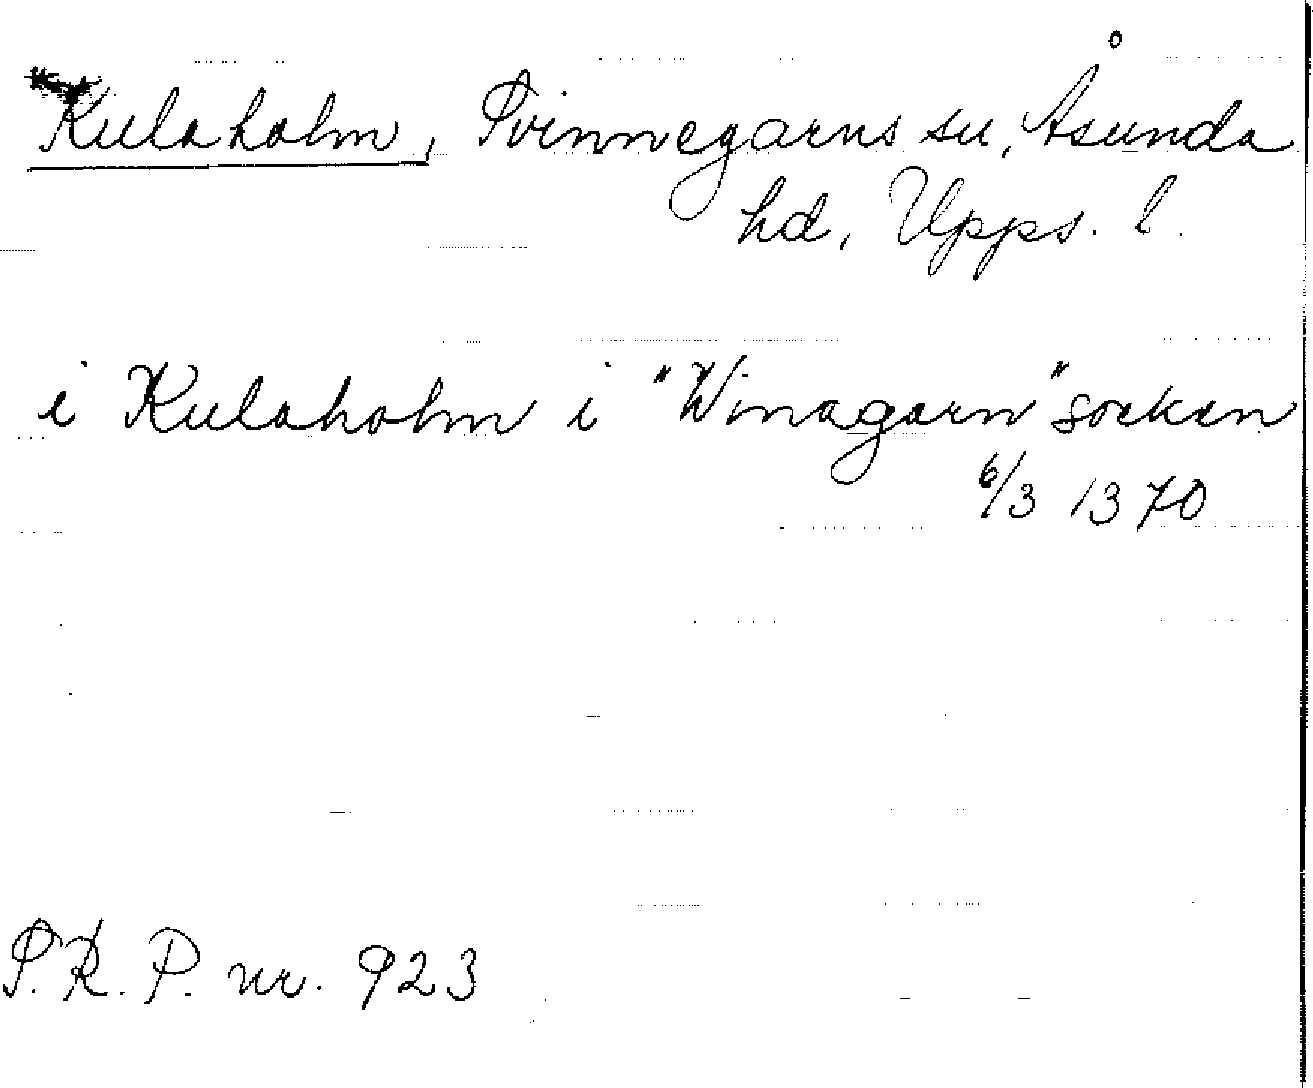 Kulaholm, Svinnegarns sn, Åsunda
hd, Upps. l.
i Kulaholm i "Winagarn" socken
6/3 1370
S.R.P. nr. 923